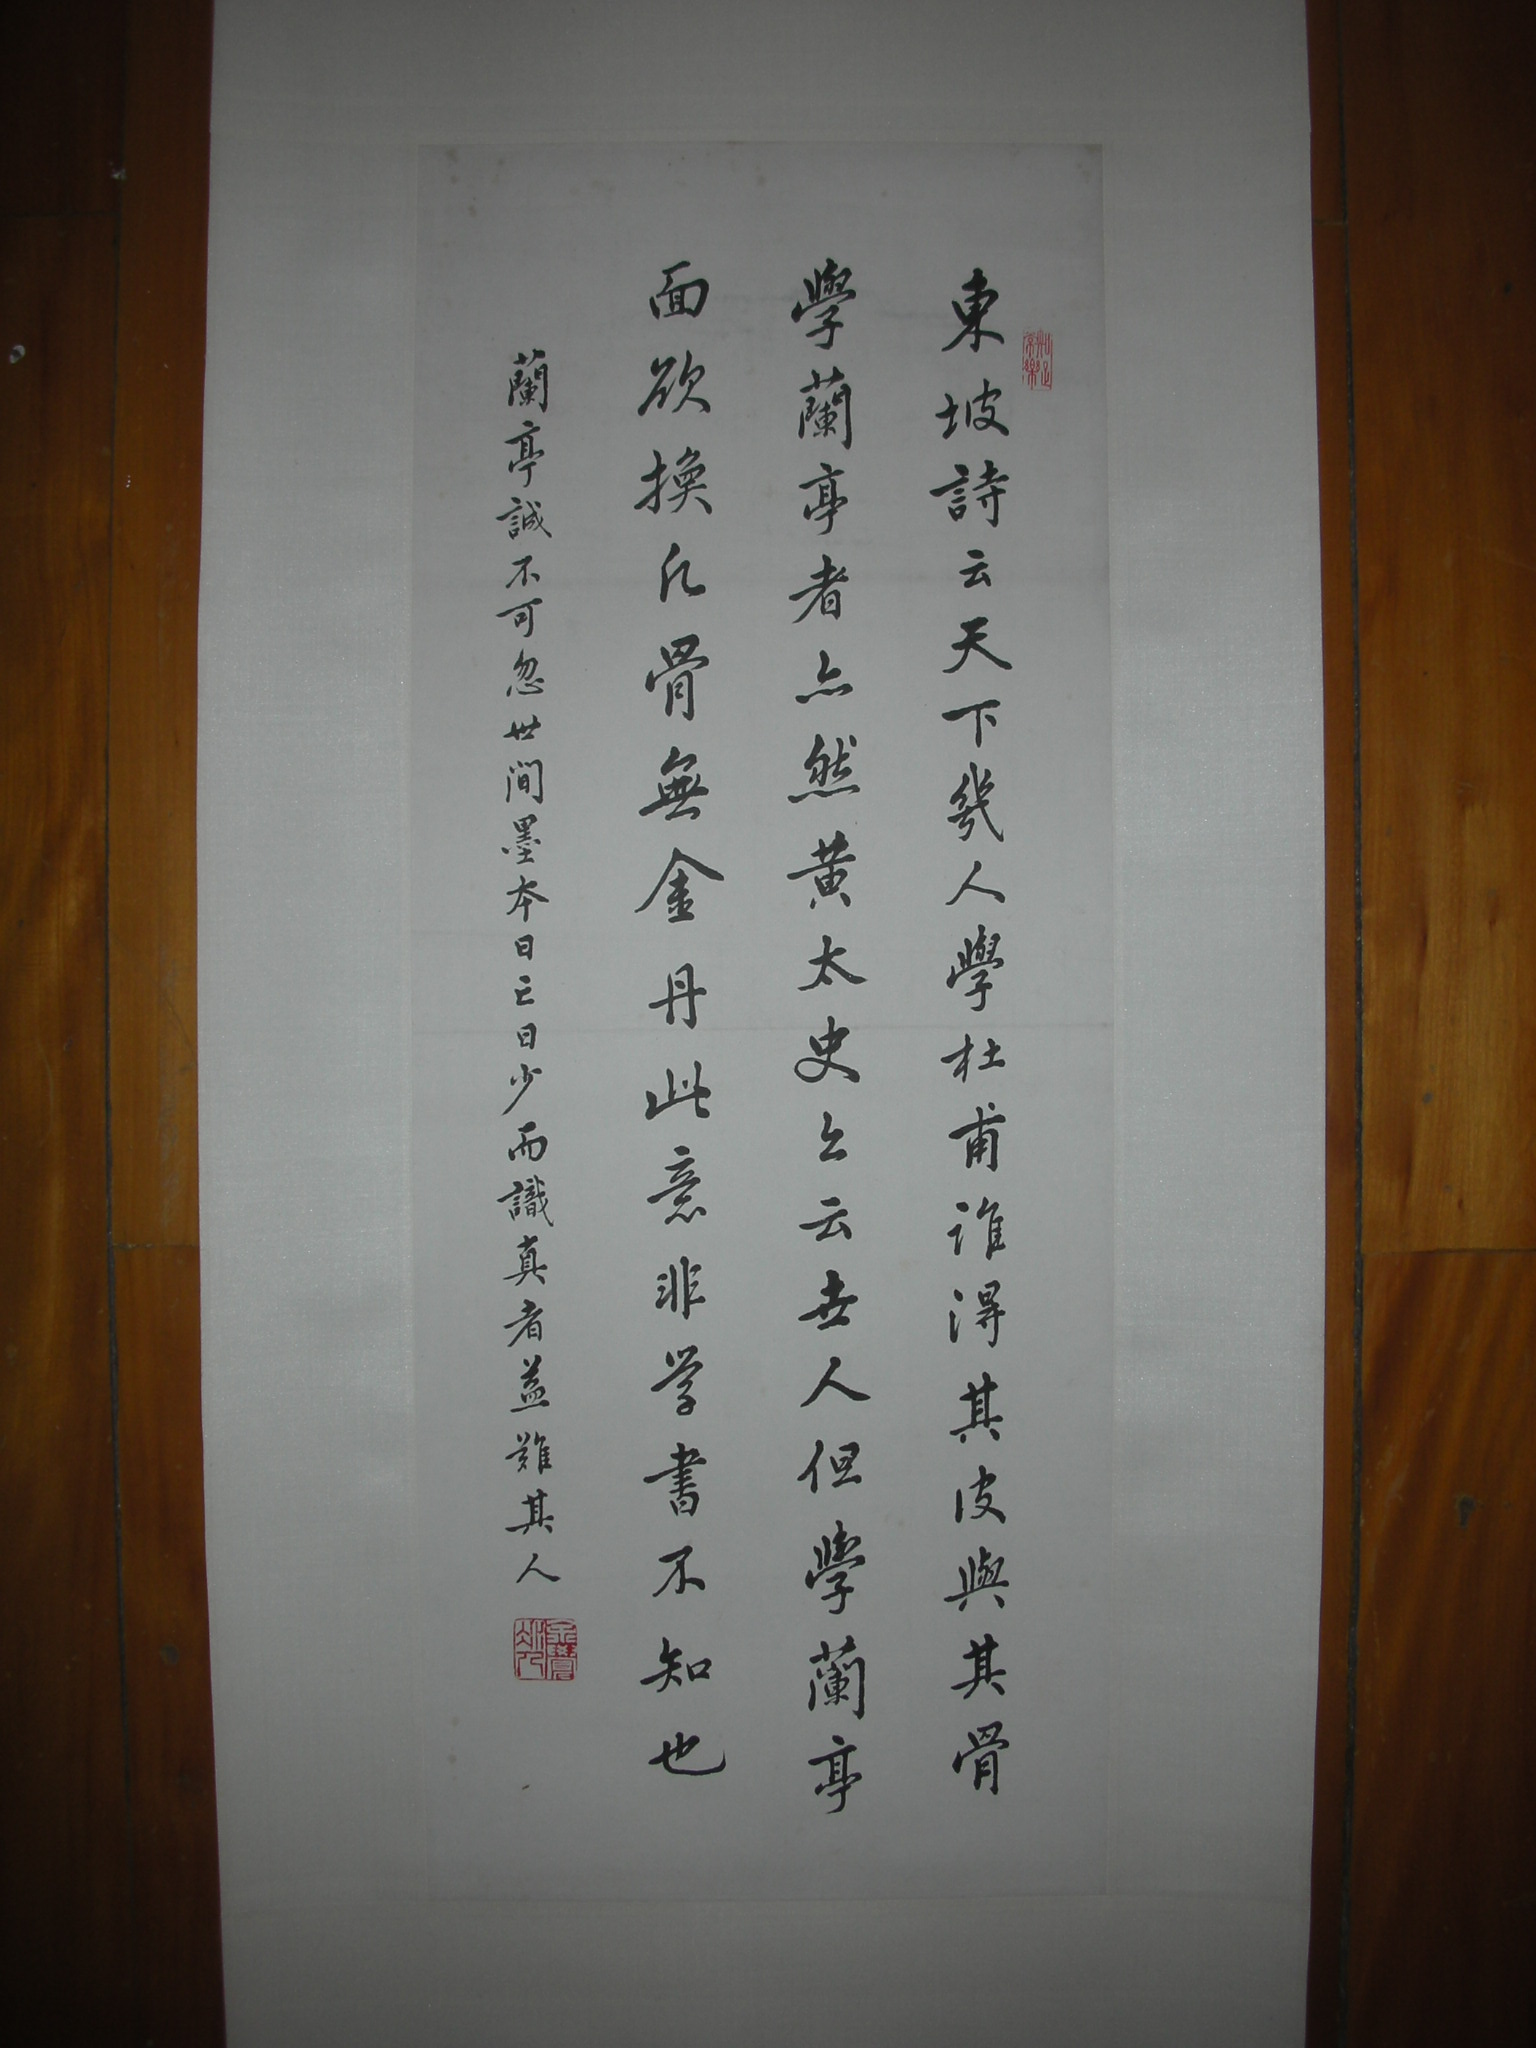 東坡詩云天下幾人學杜甫誰得其皮與其骨
學蘭亭者亦然黄太史亦云世人但學蘭亭
面欲換凡骨無金丹此意非学書不知也
蘭亭誠不可忽世間墨本日亡日少而識真者益難其人